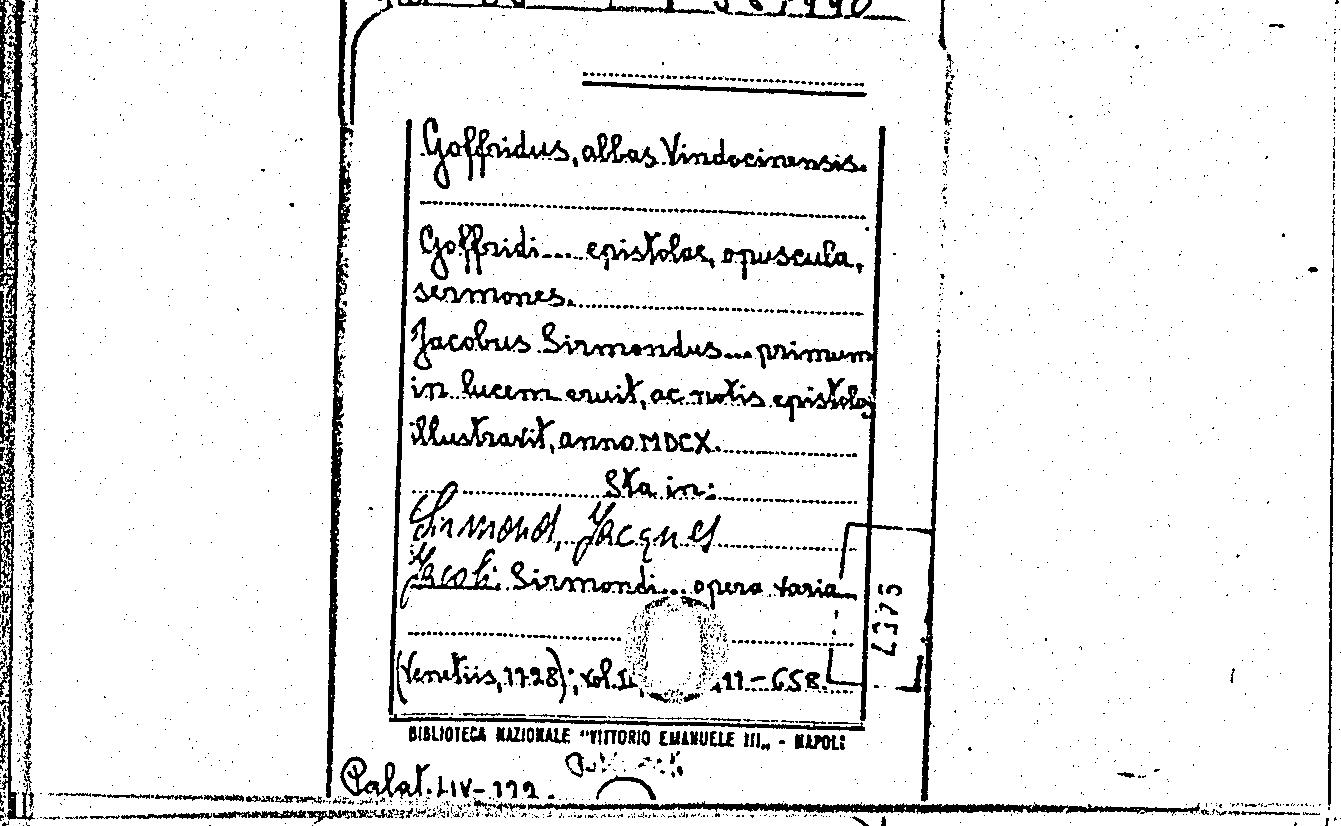 Goffridus, abbas Vindocinensis.
Goffridi... epistolae, opuscula,
sermones.
Jacobus Sirmondus... primum
in lucem eruit, ac notis epistolas
illustravit, anno MDCX.
Sta in:
Sirmond, Jacques
Jacobi Sirmondi... opera varia
(Venetiis, 1728); vol. 11-658.
BIBLIOTECA NAZIONALE "VITTORIO EMANUELE III„ - NAPOLI
Palat. LIV-122.